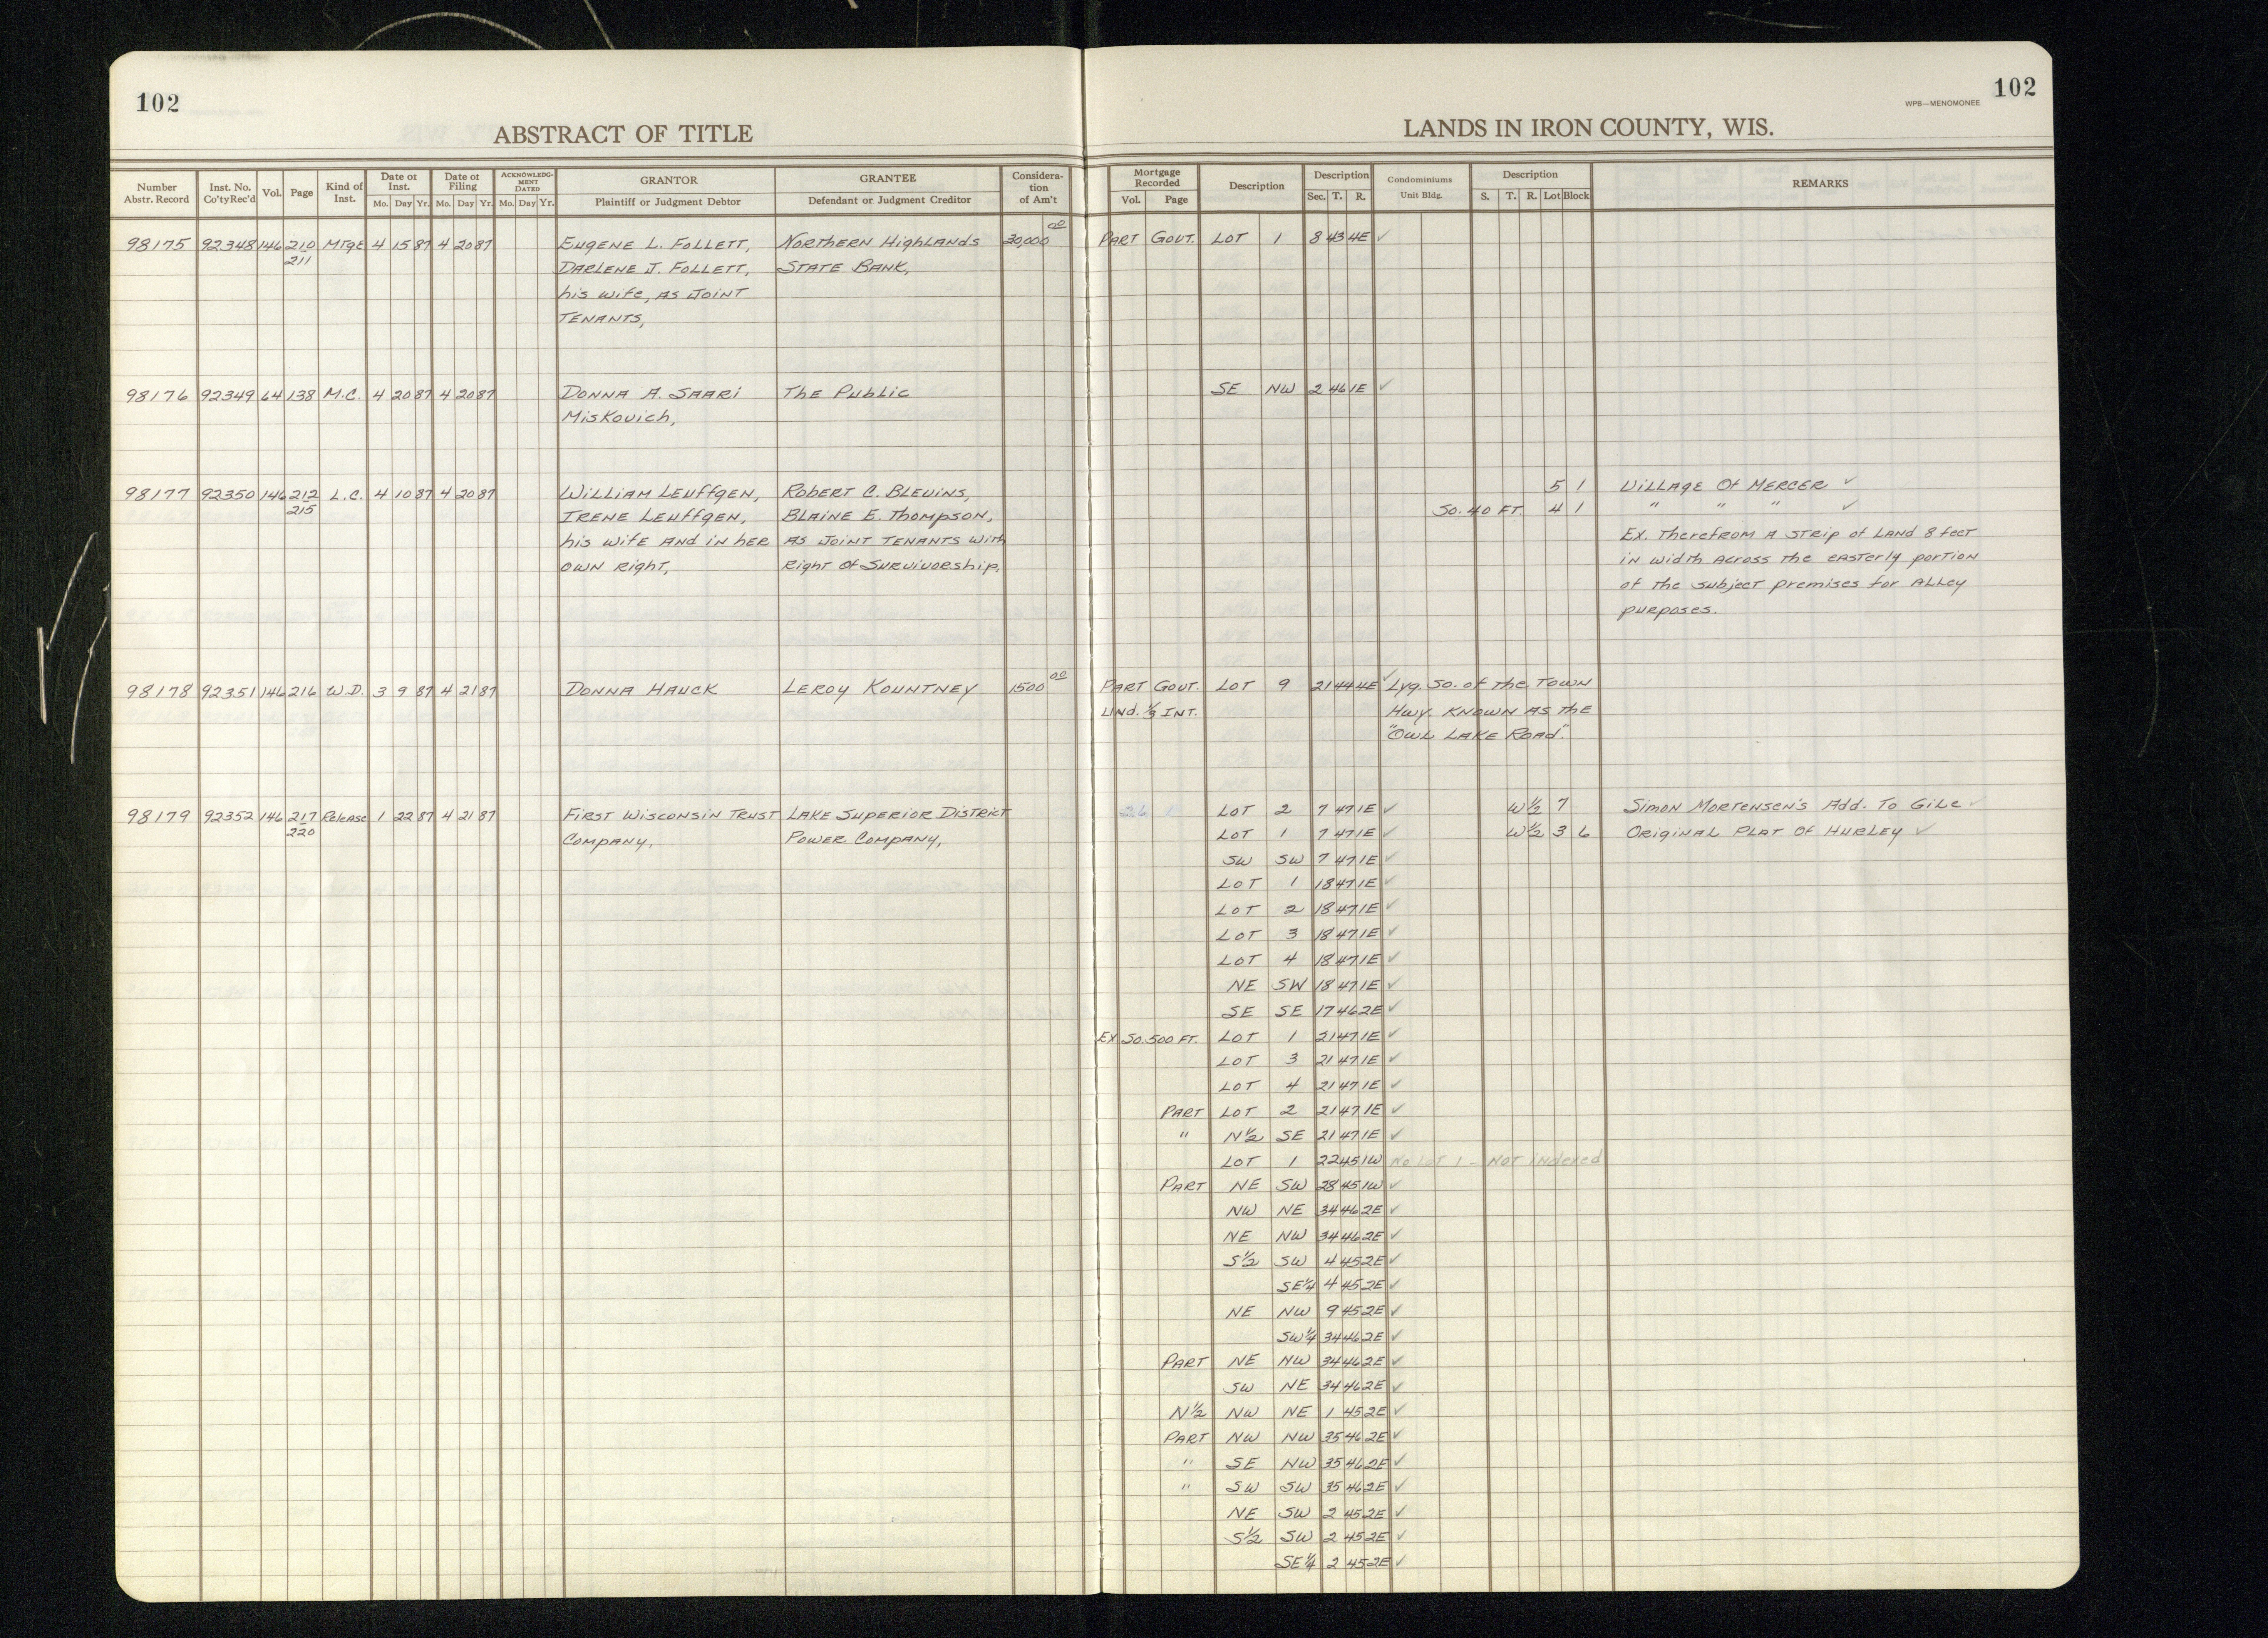 102
102
WPB—MENOMONEE
ABSTRACT OF TITLE
LANDS IN IRON COUNTY, WIS.
Number Abstr. Record | Inst. No. Co'ty Rec'd | Vol. | Page | Kind of Inst. | Date of Inst. Mo. Day Yr. | Date of Filing Mo. Day Yr. | ACKNOWLEDGMENT DATED Mo. Day Yr. | GRANTOR Plaintiff or Judgment Debtor | GRANTEE Defendant or Judgment Creditor | Consideration of Am't | Mortgage Recorded Vol. Page | Description | Description Sec. T. R. | Condominiums Unit Bldg. | Description S. T. R. Lot Block | REMARKS
98175 92348 146 210 Mtge 4 15 87 4 20 87 Eugene L. Follett, Northern Highlands 30,000 00 Part Gout. Lot 1 8 43 4E ✓
211 Darlene J. Follett, State Bank,
his wife, as Joint
Tenants,
98176 92349 64 138 M.C. 4 20 87 4 20 87 Donna A. Saari The Public SE NW 2 46 1E ✓
Miskovich,
98177 92350 146 212 L.C. 4 10 87 4 20 87 William Leuffgen, Robert C. Blevins, 5 1 Village Of Mercer ✓
215 Irene Leuffgen, Blaine E. Thompson, So. 40 Ft. 4 1 " " " ✓
his wife and in her as Joint Tenants with Ex. Therefrom a strip of land 8 feet
own right, Right of Survivorship, in width across the easterly portion
of the subject premises for alley
purposes.
98178 92351 146 216 W.D. 3 9 87 4 21 87 Donna Hauck Leroy Kountney 1500 00 Part Gout. Lot 9 21 44 4E ✓ Lyg. So. of the Town
Und. 1/3 Int. Hwy. known as the
"Owl Lake Road".
98179 92352 146 217 Release 1 22 87 4 21 87 First Wisconsin Trust Lake Superior District 26 1 Lot 2 7 47 1E ✓ W½ 7 Simon Mortensen's Add. To Gile ✓
220 Company, Power Company, Lot 1 7 47 1E ✓ W½ 3 6 Original Plat Of Hurley ✓
SW SW 7 47 1E ✓
Lot 1 18 47 1E ✓
Lot 2 18 47 1E ✓
Lot 3 18 47 1E ✓
Lot 4 18 47 1E ✓
NE SW 18 47 1E ✓
SE SE 17 46 2E ✓
Ex So. 500 Ft. Lot 1 21 47 1E ✓
Lot 3 21 47 1E ✓
Lot 4 21 47 1E ✓
Part Lot 2 21 47 1E ✓
" N½ SE 21 47 1E ✓
Lot 1 22 45 1W No Lot 1 - Not indexed
Part NE SW 28 45 1W ✓
NW NE 34 46 2E ✓
NE NW 34 46 2E ✓
S½ SW 4 45 2E ✓
SE¼ 4 45 2E ✓
NE NW 9 45 2E ✓
SW¼ 34 46 2E ✓
Part NE NW 34 46 2E ✓
SW NE 34 46 2E ✓
N½ NW NE 1 45 2E ✓
Part NW NW 35 46 2E ✓
" SE NW 35 46 2E ✓
" SW SW 35 46 2E ✓
NE SW 2 45 2E ✓
S½ SW 2 45 2E ✓
SE¼ 2 45 2E ✓